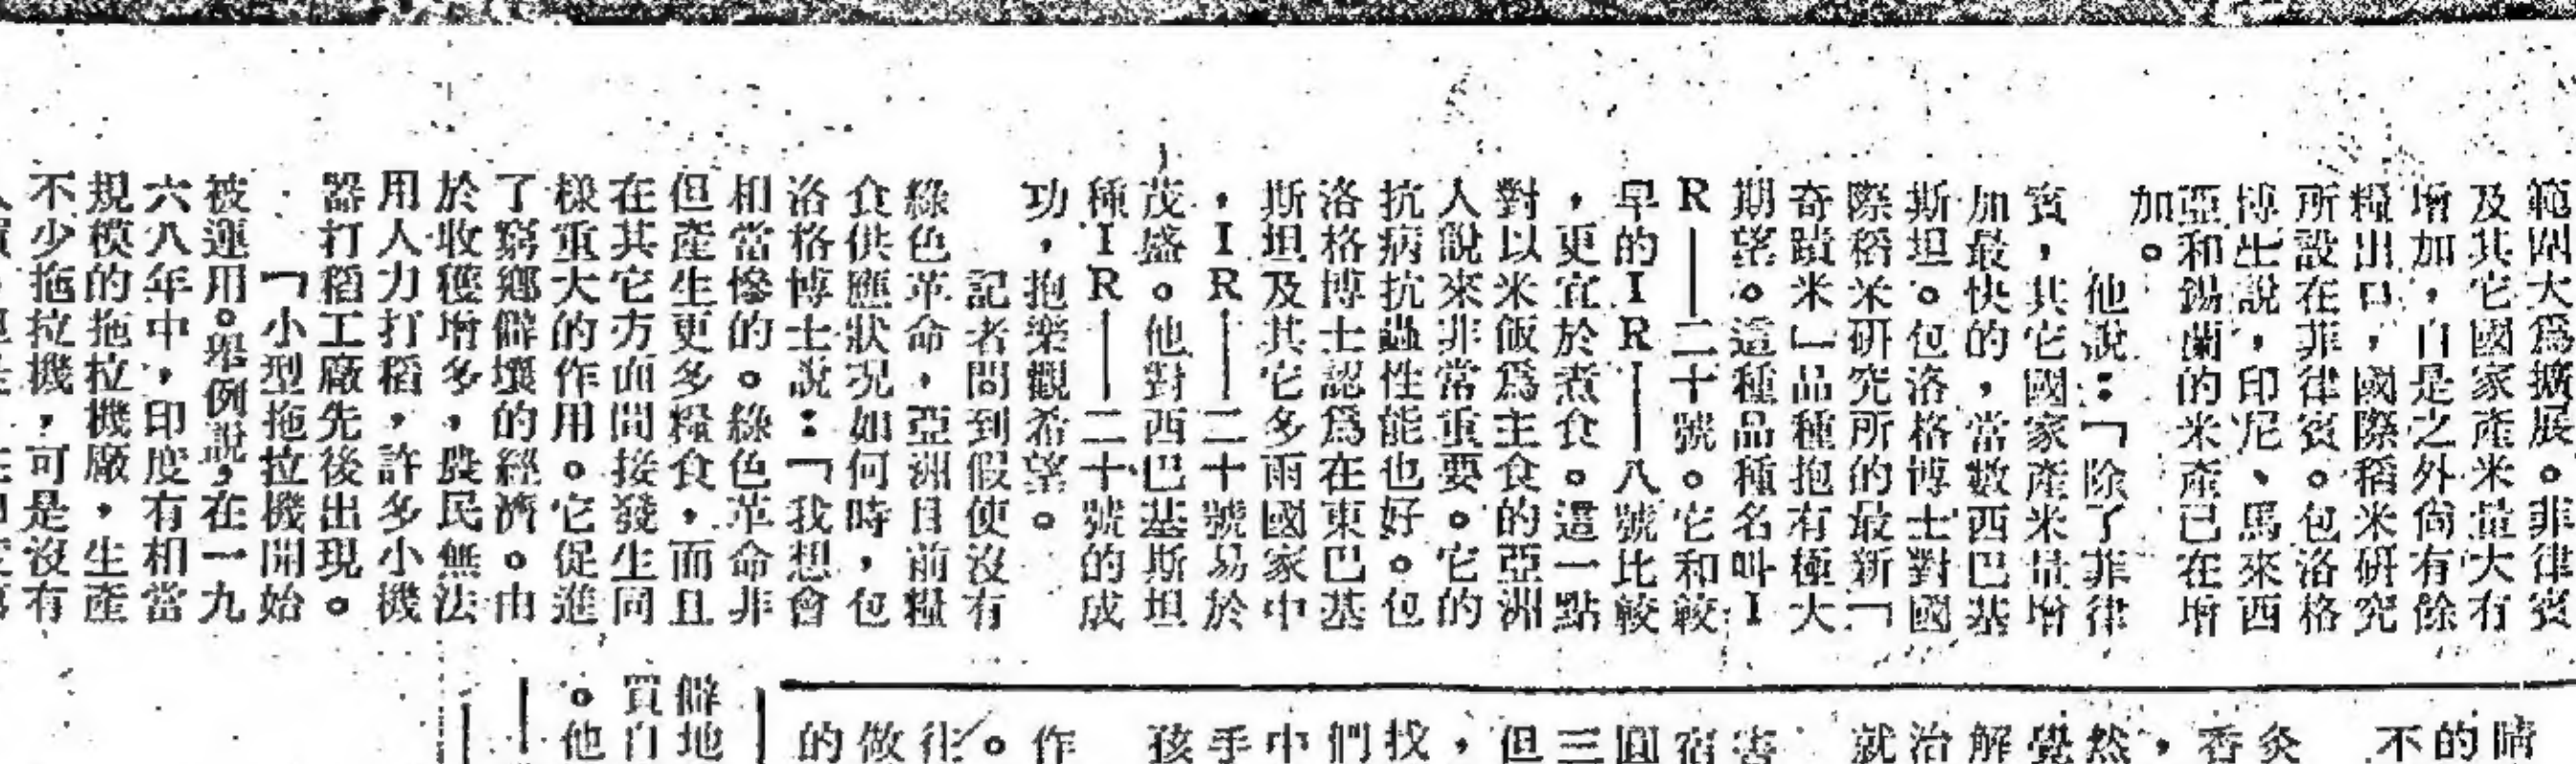 範圍大爲擴展。非律賓
及其它國家產米量大有
增加,自是之外尙有餘
糧出口,國際稻米研究
所設在菲律賓。包洛格
博士說,印尼、馬來西
亞和錫蘭的米產已在增
加。
他說:「除了菲律
賓,其它國家產米量增
加最快的,當數西巴基
斯坦。包洛格博士對國
際稻米研究所的最新「
奇蹟米」品種抱有極大
期望。這種品種名叫I
R—二十號。它和較
早的IR—八號比較
,更宜於煮食。這一點
對以米飯爲主食的亞洲
人說來非常重要。它的
抗病抗蟲性能也好。包
洛格博士認爲在東巴基
斯坦及其它多雨國家中
,IR—二十號易於
茂盛。他對西巴基斯坦
種IR—二十號的成
功,抱樂觀希望。
記者問到假使沒有
綠色革命,亞洲目前糧
食供應狀況如何時,包
洛格博士說:「我想會
相當慘的。綠色革命非
但產生更多糧食,而且
在其它方面間接發生同
樣重大的作用。它促進
了窮鄉僻壤的經濟。由
於收穫增多,農民無法
用人力打稻,許多小機
器打稻工廠先後出現。
「小型拖拉機開始
被運用。舉例說,在一九
六八年中,印度有相當
規模的拖拉機廠,生產
不少拖拉機,可是沒有
晴
的
不
灸
香
,
然
覺
解
治
就
害
宿
圓
三
但
,
找
們
中
手
孩
作
。
往
做
的
僻地
買自
。他